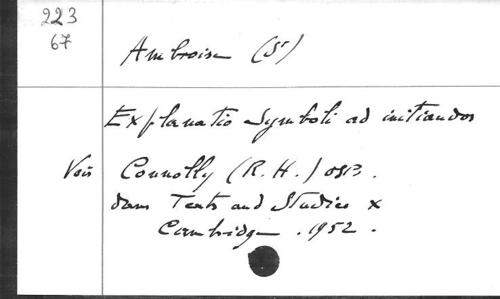 223
67
Ambroise (St)
Explanatio Symboli ad initiandos
Voir Connolly (R.H.) OSB.
dans Texts and Studies X
Cambridge. 1952.